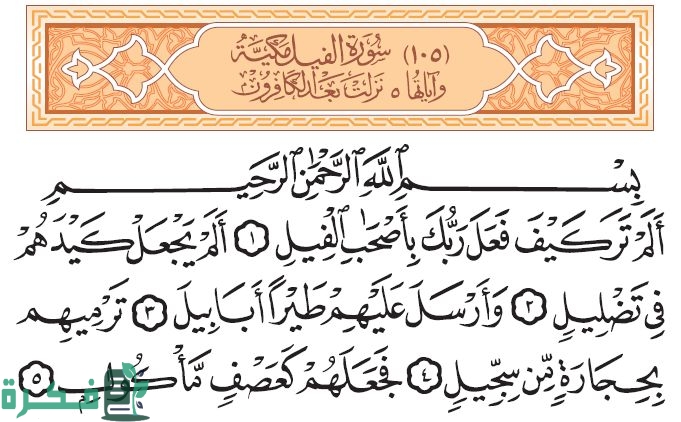 (١٠٥) سُورَةُ الفِيلِ مَكِّيَّةٌ
وَآيَاتُهَا ٥ نَزَلَتْ بَعْدَ الْكَافِرُونَ
بِسْمِ اللَّهِ الرَّحْمَٰنِ الرَّحِيمِ
أَلَمْ تَرَ كَيْفَ فَعَلَ رَبُّكَ بِأَصْحَابِ الْفِيلِ ١ أَلَمْ يَجْعَلْ كَيْدَهُمْ
فِي تَضْلِيلٍ ٢ وَأَرْسَلَ عَلَيْهِمْ طَيْرًا أَبَابِيلَ ٣ تَرْمِيهِم
بِحِجَارَةٍ مِّن سِجِّيلٍ ٤ فَجَعَلَهُمْ كَعَصْفٍ مَّأْكُولٍ ٥
فكرة